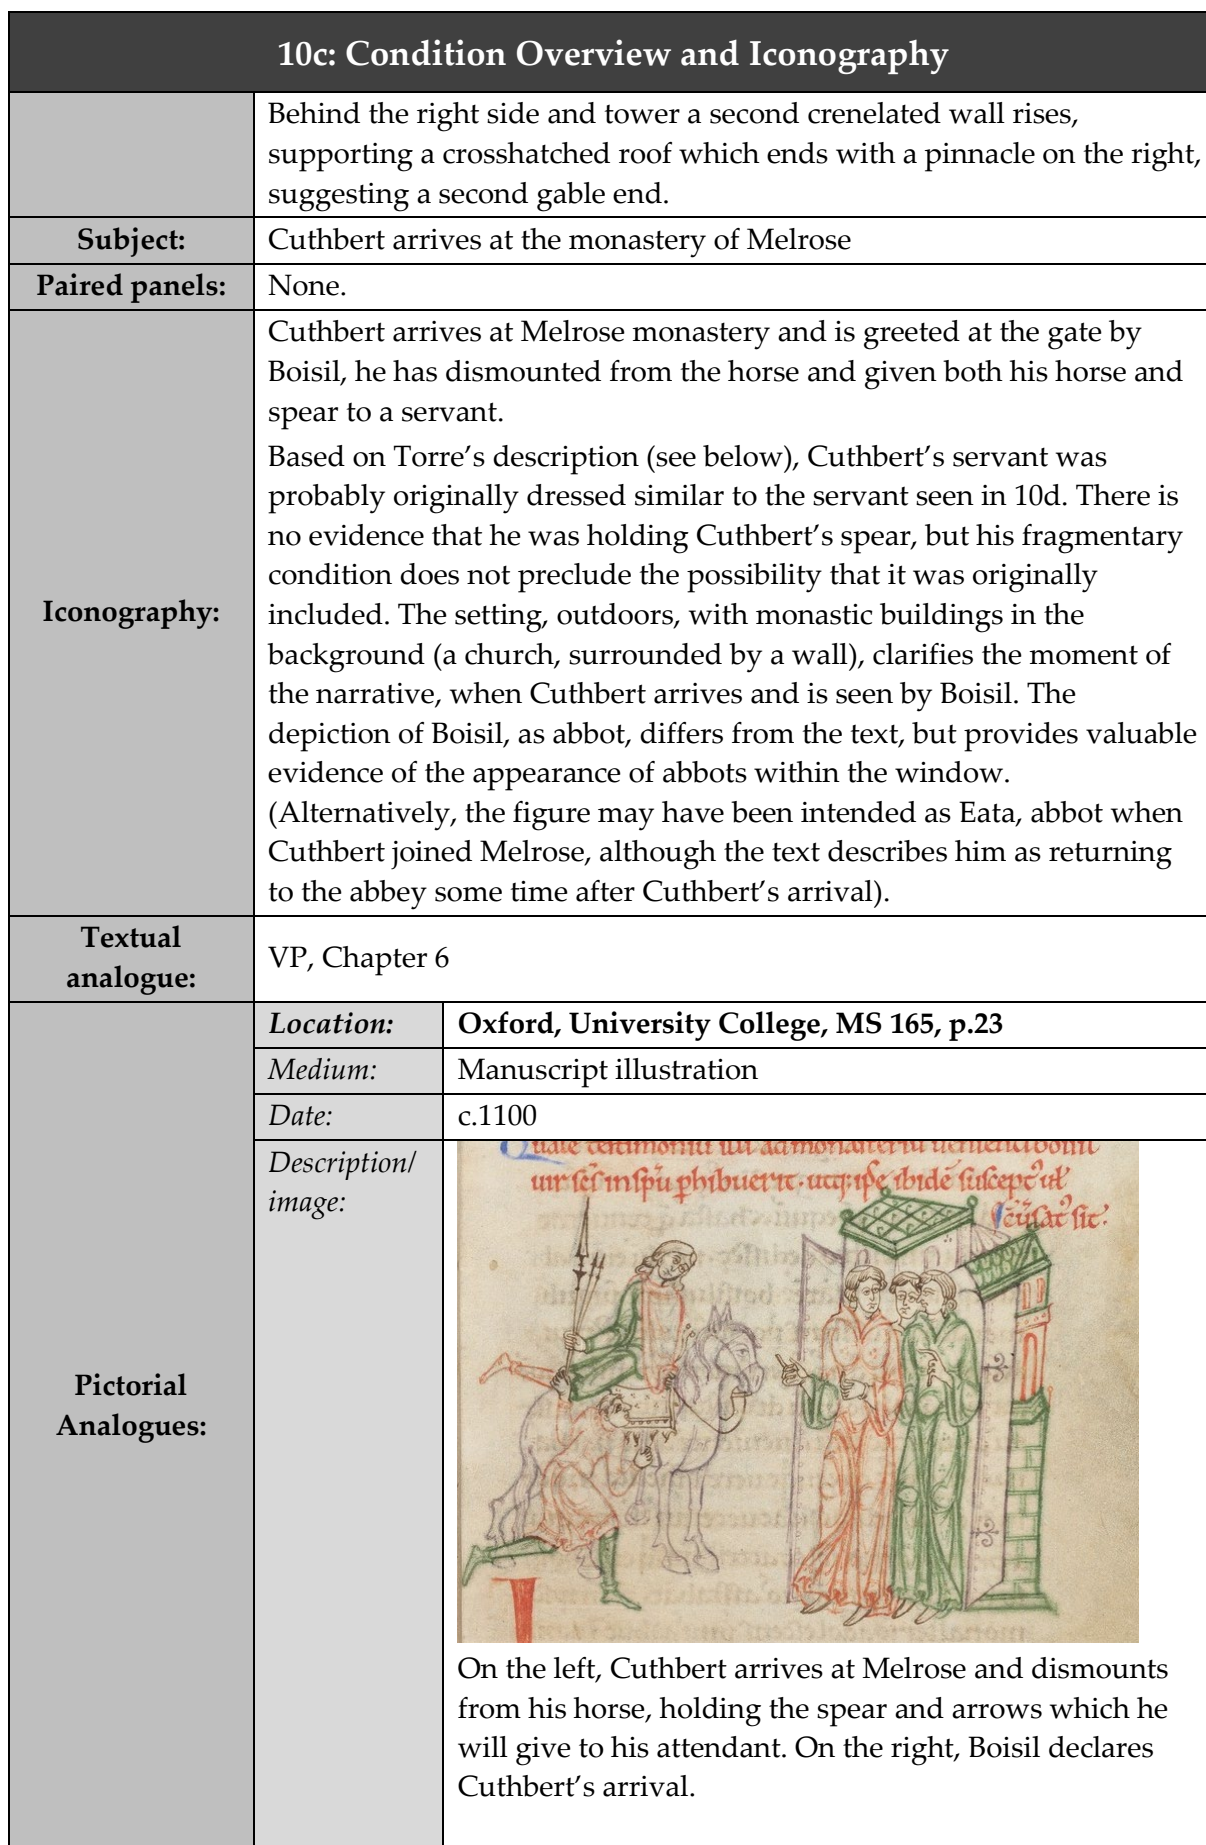 10c: Condition Overview and Iconography
Behind the right side and tower a second crenelated wall rises,
supporting a crosshatched roof which ends with a pinnacle on the right,
suggesting a second gable end.
Subject:
Cuthbert arrives at the monastery of Melrose
Paired panels:
None.
Iconography:
Cuthbert arrives at Melrose monastery and is greeted at the gate by
Boisil, he has dismounted from the horse and given both his horse and
spear to a servant.
Based on Torre’s description (see below), Cuthbert’s servant was
probably originally dressed similar to the servant seen in 10d. There is
no evidence that he was holding Cuthbert’s spear, but his fragmentary
condition does not preclude the possibility that it was originally
included. The setting, outdoors, with monastic buildings in the
background (a church, surrounded by a wall), clarifies the moment of
the narrative, when Cuthbert arrives and is seen by Boisil. The
depiction of Boisil, as abbot, differs from the text, but provides valuable
evidence of the appearance of abbots within the window.
(Alternatively, the figure may have been intended as Eata, abbot when
Cuthbert joined Melrose, although the text describes him as returning
to the abbey some time after Cuthbert’s arrival).
Textual
analogue:
VP, Chapter 6
Pictorial
Analogues:
Location:
Oxford, University College, MS 165, p.23
Medium:
Manuscript illustration
Date:
c.1100
Description/
image:
On the left, Cuthbert arrives at Melrose and dismounts
from his horse, holding the spear and arrows which he
will give to his attendant. On the right, Boisil declares
Cuthbert’s arrival.